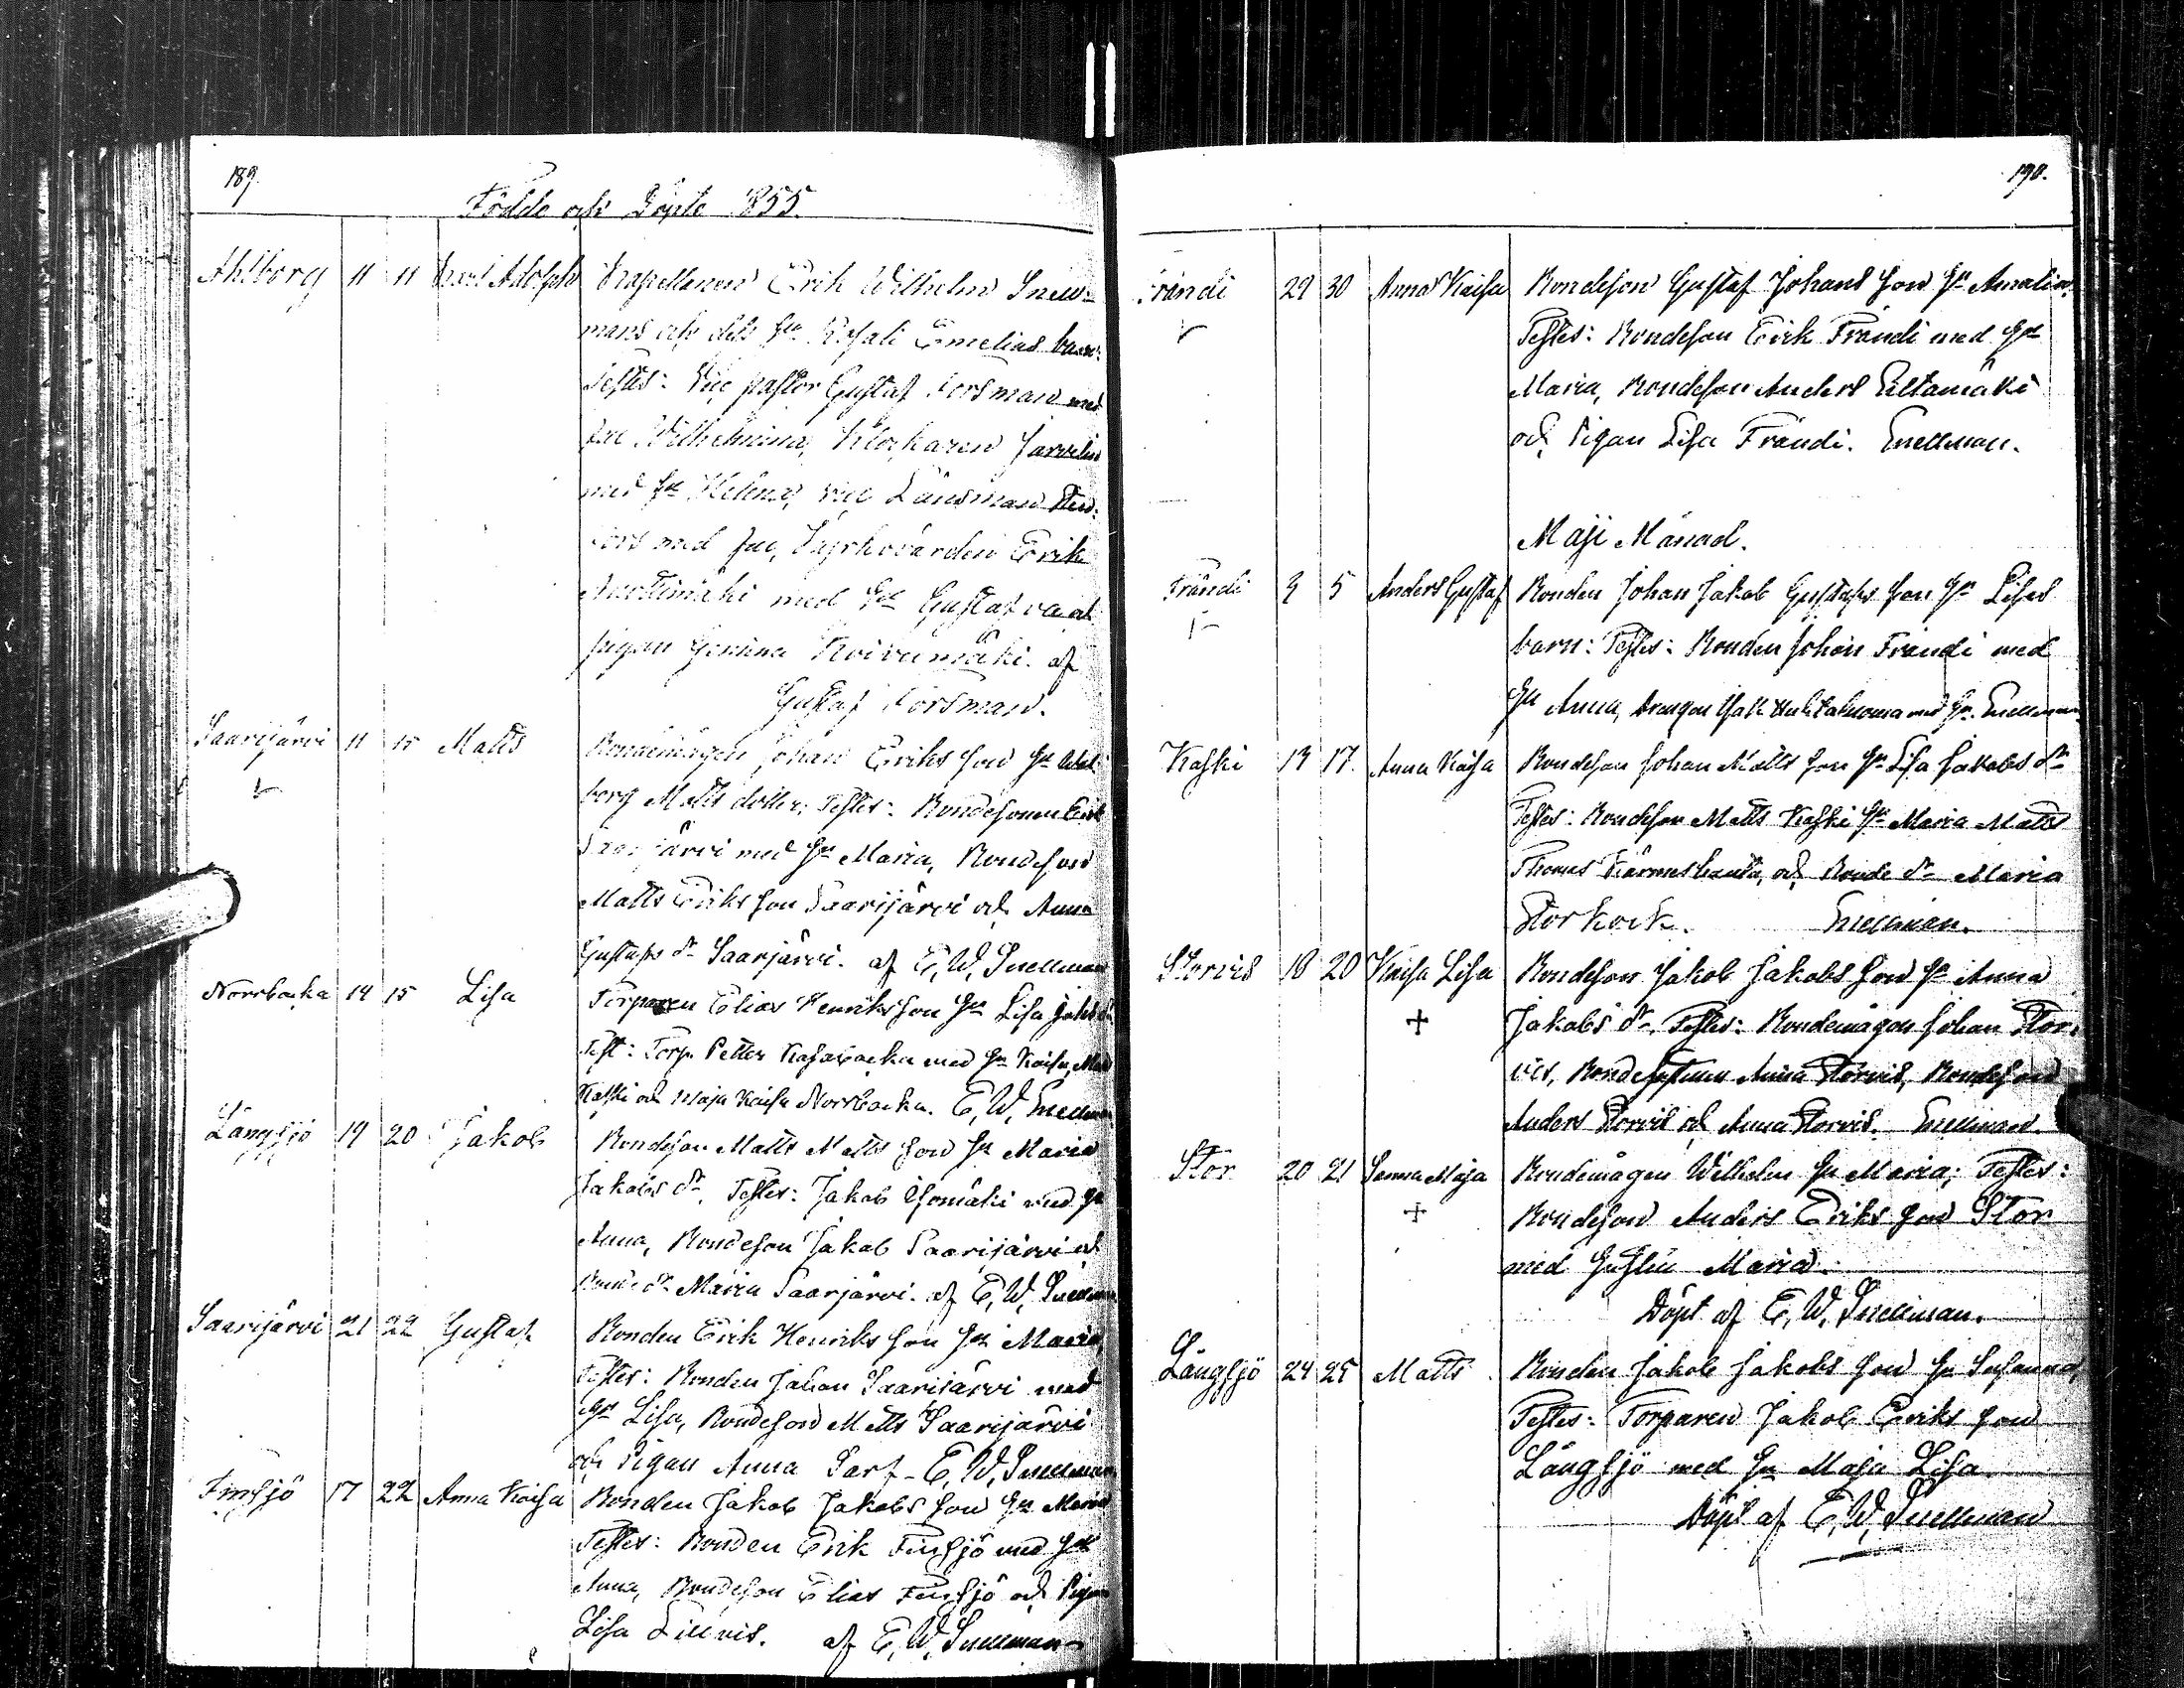 189.
Födde och Döpte 1855.
Ahlborg 11 11 Karl Adolph Kapellanen Erik Wilhelm Snell-
mans och dess Hu Rosali Emelias barn:
Testes: Vice pastor Gustaf Forsman med
Fru Wilhelmina, Klockaren Jarvelin
med Hu Helena, vice Länsman
fors med Fru, Kyrkovärden Erik
med Hu Gustafva och
pigan Koivumäki. af
Gustaf Forsman.
Saarijärvi 11 15 Matts Bondemågen Johan Eriks son Hu Wal-
borg Matts dotter; Testes: Bondesonen Erik
Saarijärvi med Hu Maria, Bondeson
Matts Eriks son Saarijärvi och Anna
Gustafs dr Saarjärvi. af E. W. Snellman
Norrbacka 14 15 Lisa Torparen Elias Henriks son Hu Lisa Johs dr
Test: Torp. Petter Kasabacka med Hu Kaisa, Matts
Kaski och Maja Kaisa Norrbacka. E. W. Snellman
Långsjö 19 20 Jakob Bondeson Matts Matts son Hu Maria
Jakobs dr. Testes: Jakob Isomäki med Hu
Anna, Bondeson Jakob Saarijärvi och
Bonde dr Maria Saarjärvi. af E. W. Snellman
Saarijärvi 21 22 Gustaf Bonden Erik Henriks son Hu Maria,
Testes: Bonden Johan Saarijärvi med
Hu Lisa, Bondeson Matts Saarijärvi
och Pigan Anna Sarf - E. W. Snellman
Finsjö 17 22 Anna Kaisa Bonden Jakob Jakobs son Hu Maria
Testes: Bonden Erik Finsjö med Hu
Anna, Bondeson Elias Finsjö och Pigan
Lisa Lillvis. af E. W. Snellman
190.
Frändi 29 30 Anna Kaisa Bondeson Gustaf Johans son Hu Amalia.
Testes: Bondeson Erik Frändi med Hu
Maria, Bondeson Anders Siltamäki
och Pigan Lisa Frändi. Snellman.
Maji Månad.
Frändi 3 5 Anders Gustaf Bonden Johan Jakob Gustafs son Hu Lisas
barn: Testes: Bonden Johan Frändi med
Hu Anna, Drengen Isak med Hu. Snellman
Kaski 13 17. Anna Kaisa Bondeson Johan Matts son Hu Lisa Jakobs dr
Testes: Bondeson Matts Kaski Hu Maria Matts
Thomas och Bonde dr Maria
Storkock. Snellman.
Storvis 18 20 Kaisa Lisa Bondeson Jakob Jakobs son Hu Anna
+ Jakobs dr. Testes: Bondemågen Johan Stor-
vis, Bondehustrun Anna Storvis, Bondeson
Anders Storvis och Anna Storvis. Snellman.
Stor 20 21 Sanna Maja Bondemågen Wilhelm Hu Maria; Testes:
+ Bondeson Anders Eriks son Stor
med Hustru Maria.
Döpt af E. W. Snellman.
Långsjö 24 25 Matts Bonden Jakob Jakobs son Hu Susanna,
Testes: Torparen Jakob Eriks son
Långsjö med Hu Maja Lisa
Döpt af E. W. Snellman